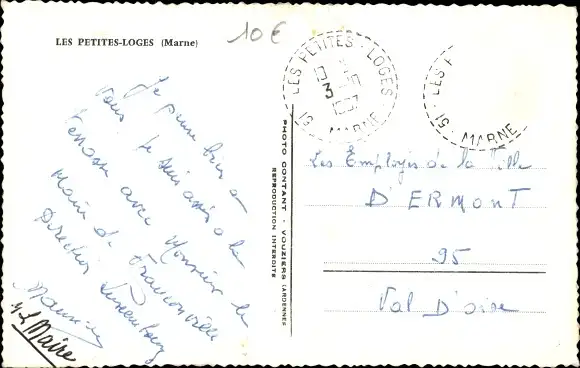 LES PETITES-LOGES (Marne)
10€
LES PETITES-LOGES
3
51 MARNE
LES P
51 MARNE
Je pense bien à
vous je suis assis à la
terrasse avec Monsieur le
maire de Franconville
Direction Luxembourg
Maurice
Mr Maire
PHOTO CONTANT - VOUZIERS (ARDENNES)
REPRODUCTION INTERDITE
Les Employés de la Ville
D'ERMONT
95
Val D'oise